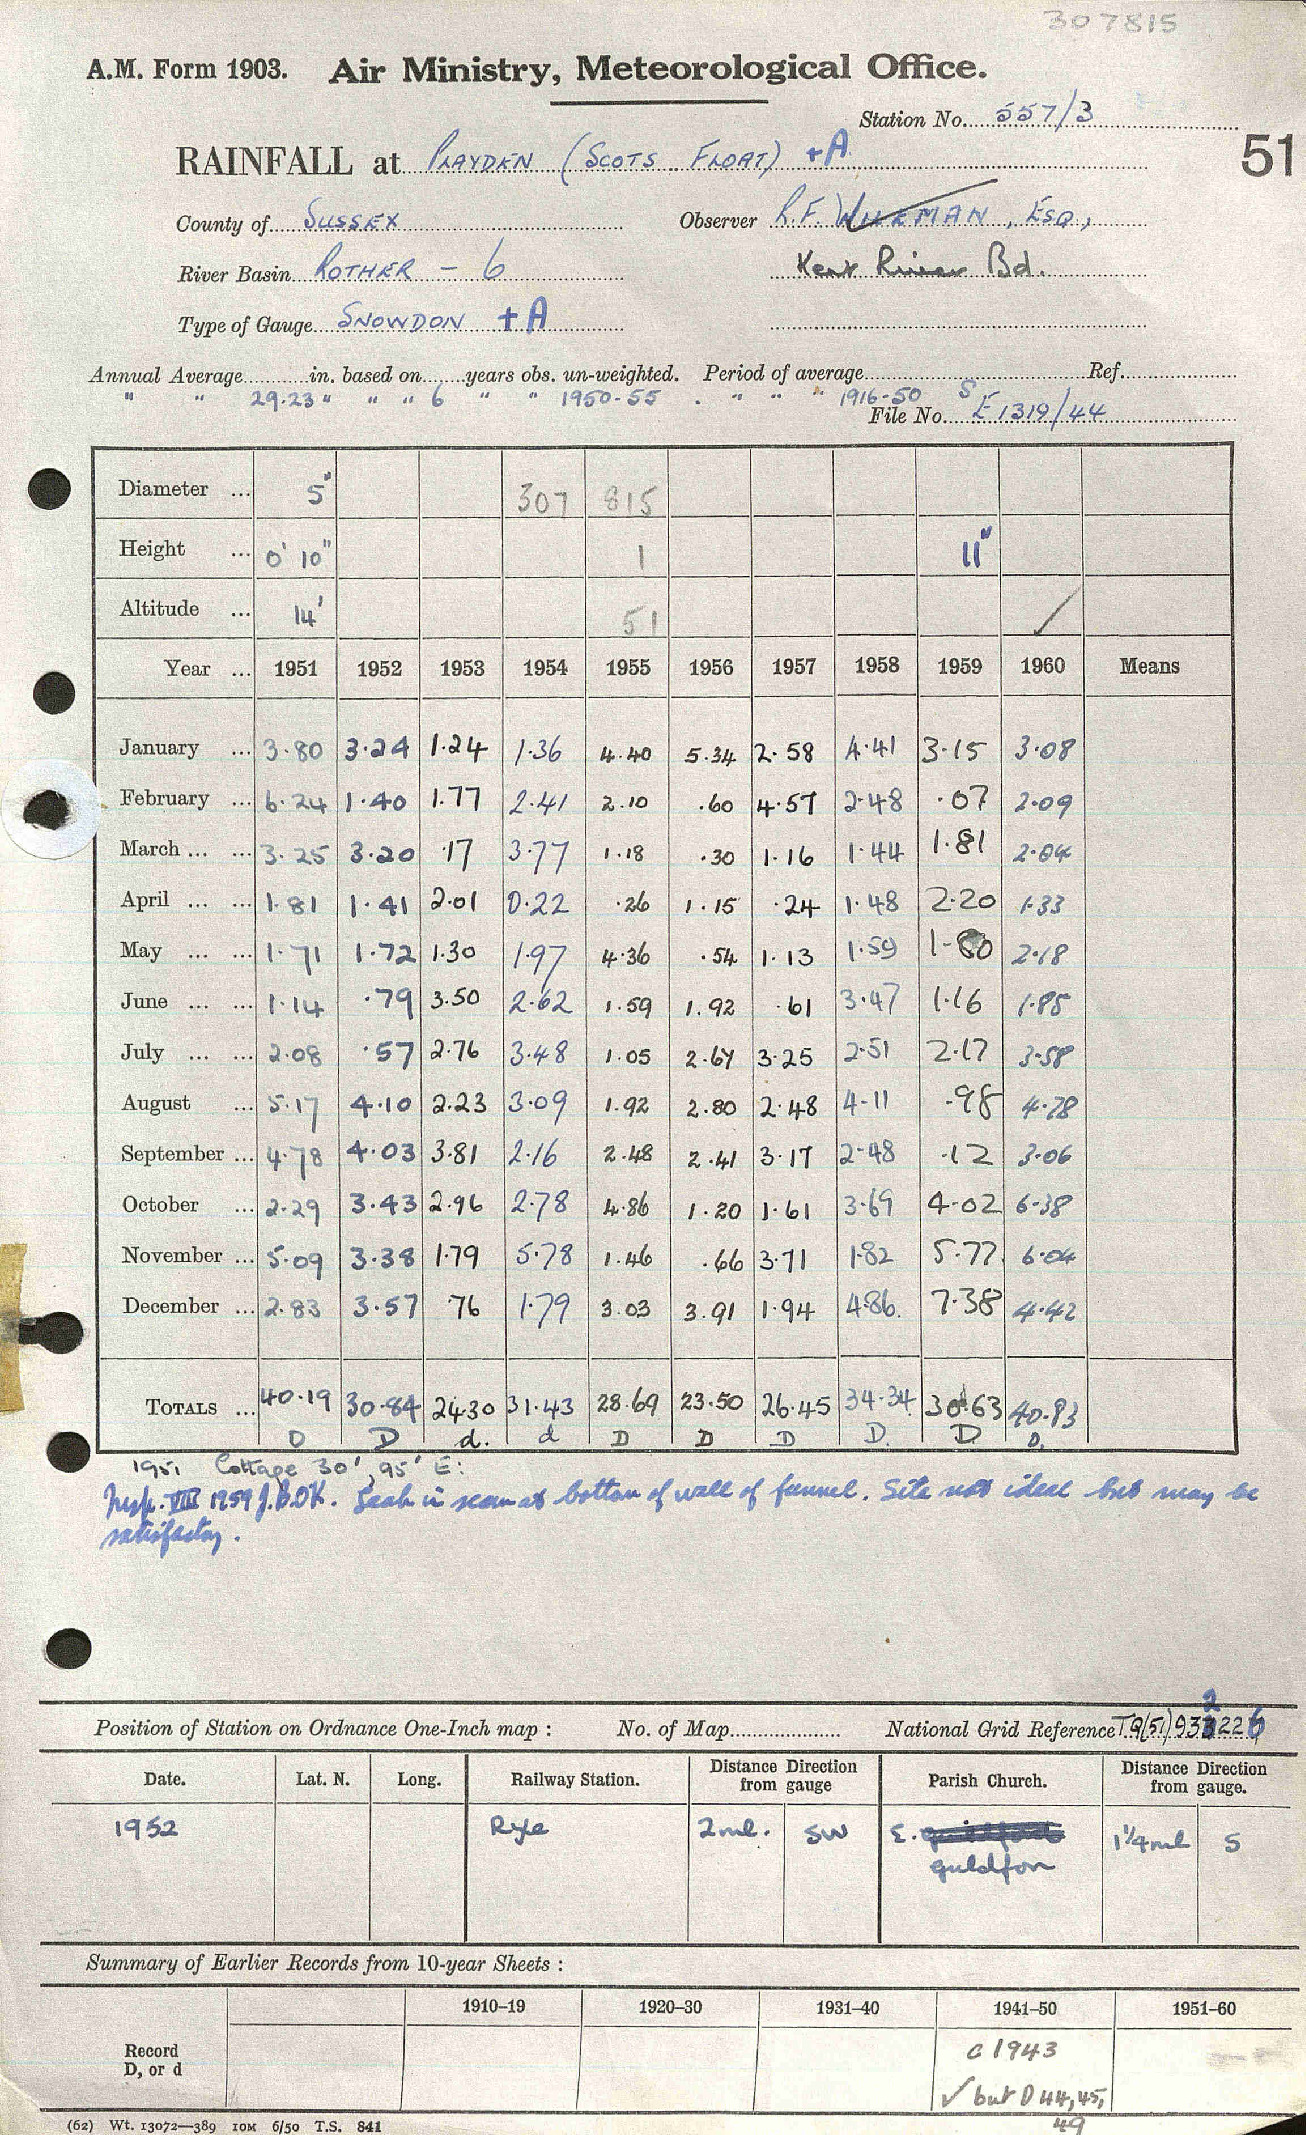 307815
A.M. Form 1903. Air Ministry, Meteorological Office.
Station No. 557/3
51
RAINFALL at PLAYDEN (SCOTS FLOAT) + A
County of SUSSEX Observer R.F. WILEMAN, ESQ.,
River Basin ROTHER - 6 Kent River Bd.
Type of Gauge SNOWDON + A
Annual Average in. based on years obs. un-weighted. Period of average Ref.
" " 29.23 " " " 6 " " 1950-55 . " " " 1916-50 S
File No. E1319/44
Diameter ... 5" 307 815
Height ... 0' 10" 1 11"
Altitude ... 14' 51 ✓
Year ... 1951 1952 1953 1954 1955 1956 1957 1958 1959 1960 Means
January ... 3.80 3.24 1.24 1.36 4.40 5.34 2.58 4.41 3.15 3.08
February ... 6.24 1.40 1.77 2.41 2.10 .60 4.57 2.48 .07 2.09
March ... ... 3.25 3.20 .17 3.77 1.18 .30 1.16 1.44 1.81 2.04
April ... ... 1.81 1.41 2.01 0.22 .26 1.15 .24 1.48 2.20 1.33
May ... ... 1.71 1.72 1.30 1.97 4.36 .54 1.13 1.59 1.80 2.18
June ... ... 1.14 .79 3.50 2.62 1.59 1.92 .61 3.47 1.16 1.85
July ... ... 2.08 .57 2.76 3.48 1.05 2.67 3.25 2.51 2.17 3.58
August ... 5.17 4.10 2.23 3.09 1.92 2.80 2.48 4.11 .98 4.78
September ... 4.78 4.03 3.81 2.16 2.48 2.41 3.17 2.48 .12 3.06
October ... 2.29 3.43 2.96 2.78 4.86 1.20 1.61 3.69 4.02 6.38
November ... 5.09 3.38 1.79 5.78 1.46 .66 3.71 1.82 5.77 6.04
December ... 2.83 3.57 .76 1.79 3.03 3.91 1.94 4.86. 7.38 4.42
TOTALS ... 40.19 30.84 24.30 31.43 28.69 23.50 26.45 34.34 30.63 40.83
D D d. d D D D D. D D.
1951 Cottage 30', 95' E:
Insp. VIII 1959 J.B.D.K. Leak in seam at bottom of wall of funnel. Site not ideal but may be
satisfactory.
Position of Station on Ordnance One-Inch map : No. of Map National Grid Reference TQ(51)932226
Date. Lat. N. Long. Railway Station. Distance Direction from gauge Parish Church. Distance Direction from gauge.
1952 Rye 2ml. SW E. guildford 1¼ml S
guldfor
Summary of Earlier Records from 10-year Sheets :
1910–19 1920–30 1931–40 1941–50 1951–60
Record
D, or d
c 1943
✓ but D 44, 45,
49
(62) Wt. 13072—389 10M 6/50 T.S. 841